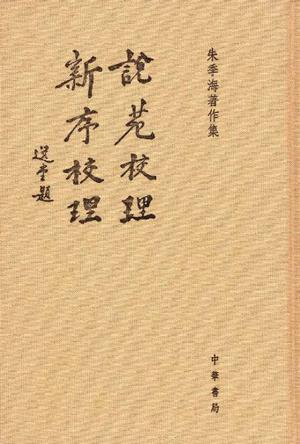 朱季海著作集
說苑校理
新序校理
選堂題
中華書局